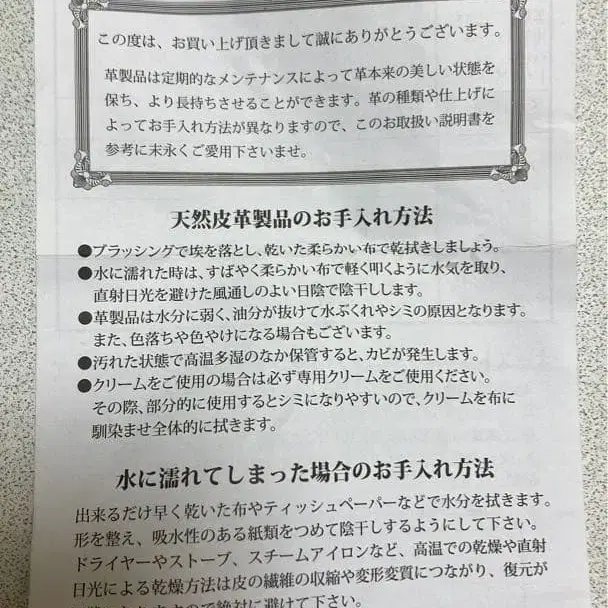 この度は、お買い上げ頂きまして誠にありがとうございます。
革製品は定期的なメンテナンスによって革本来の美しい状態を
保ち、より長持ちさせることができます。革の種類や仕上げに
よってお手入れ方法が異なりますので、このお取扱い説明書を
参考に末永くご愛用下さいませ。
天然皮革製品のお手入れ方法
●ブラッシングで埃を落とし、乾いた柔らかい布で乾拭きしましょう。
●水に濡れた時は、すばやく柔らかい布で軽く叩くように水気を取り、
直射日光を避けた風通しのよい日陰で陰干しします。
●革製品は水分に弱く、油分が抜けて水ぶくれやシミの原因となります。
また、色落ちや色やけになる場合もございます。
●汚れた状態で高温多湿のなか保管すると、カビが発生します。
●クリームをご使用の場合は必ず専用クリームをご使用ください。
その際、部分的に使用するとシミになりやすいので、クリームを布に
馴染ませ全体的に拭きます。
水に濡れてしまった場合のお手入れ方法
出来るだけ早く乾いた布やティッシュペーパーなどで水分を拭きます。
形を整え、吸水性のある紙類をつめて陰干しするようにして下さい。
ドライヤーやストーブ、スチームアイロンなど、高温での乾燥や直射
日光による乾燥方法は皮の繊維の収縮や変形変質につながり、復元が
ので絶対に避けて下さい。